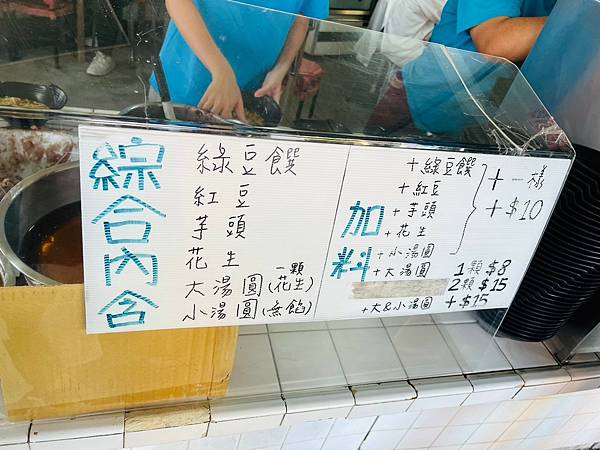 綜合內含
綠豆饌
紅豆
芋頭
花生
大湯圓(一顆花生)
小湯圓(無餡)
加料
+綠豆饌
+紅豆
+芋頭
+花生
+小湯圓
+一樣
+$10
+大湯圓 1顆$8
2顆$15
+大&小湯圓 +$15